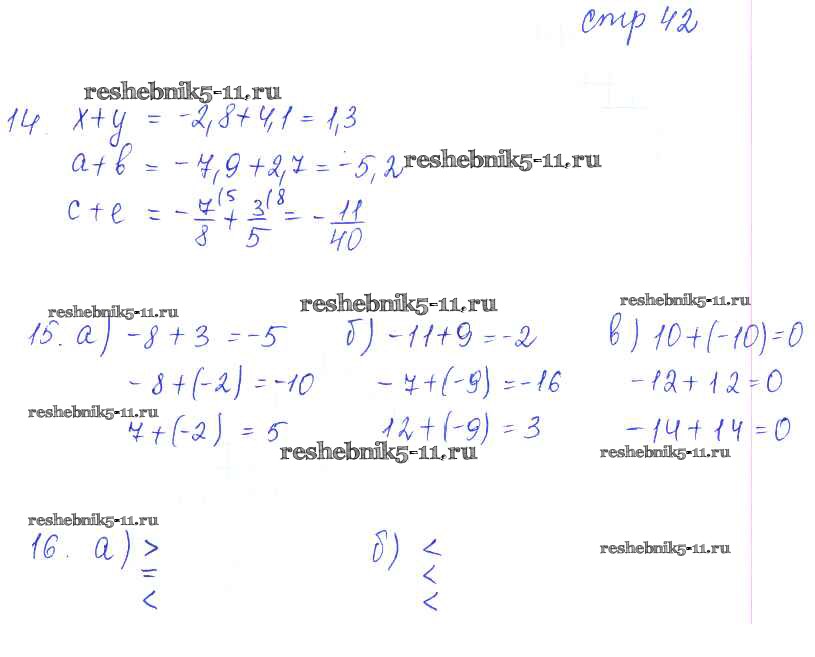 стр 42
reshebnik5-11.ru
14. x+y = -2,8+4,1 = 1,3
a+b = -7,9+2,7 = -5,2 reshebnik5-11.ru
c+e = -7/8(5 + 3/5(8 = -11/40
reshebnik5-11.ru reshebnik5-11.ru reshebnik5-11.ru
15. а) -8+3 = -5 б) -11+9 = -2 в) 10+(-10) = 0
-8+(-2) = -10 -7+(-9) = -16 -12+12 = 0
reshebnik5-11.ru
7+(-2) = 5 12+(-9) = 3 -14+14 = 0
reshebnik5-11.ru reshebnik5-11.ru
reshebnik5-11.ru
16. а) > б) < reshebnik5-11.ru
= <
< <